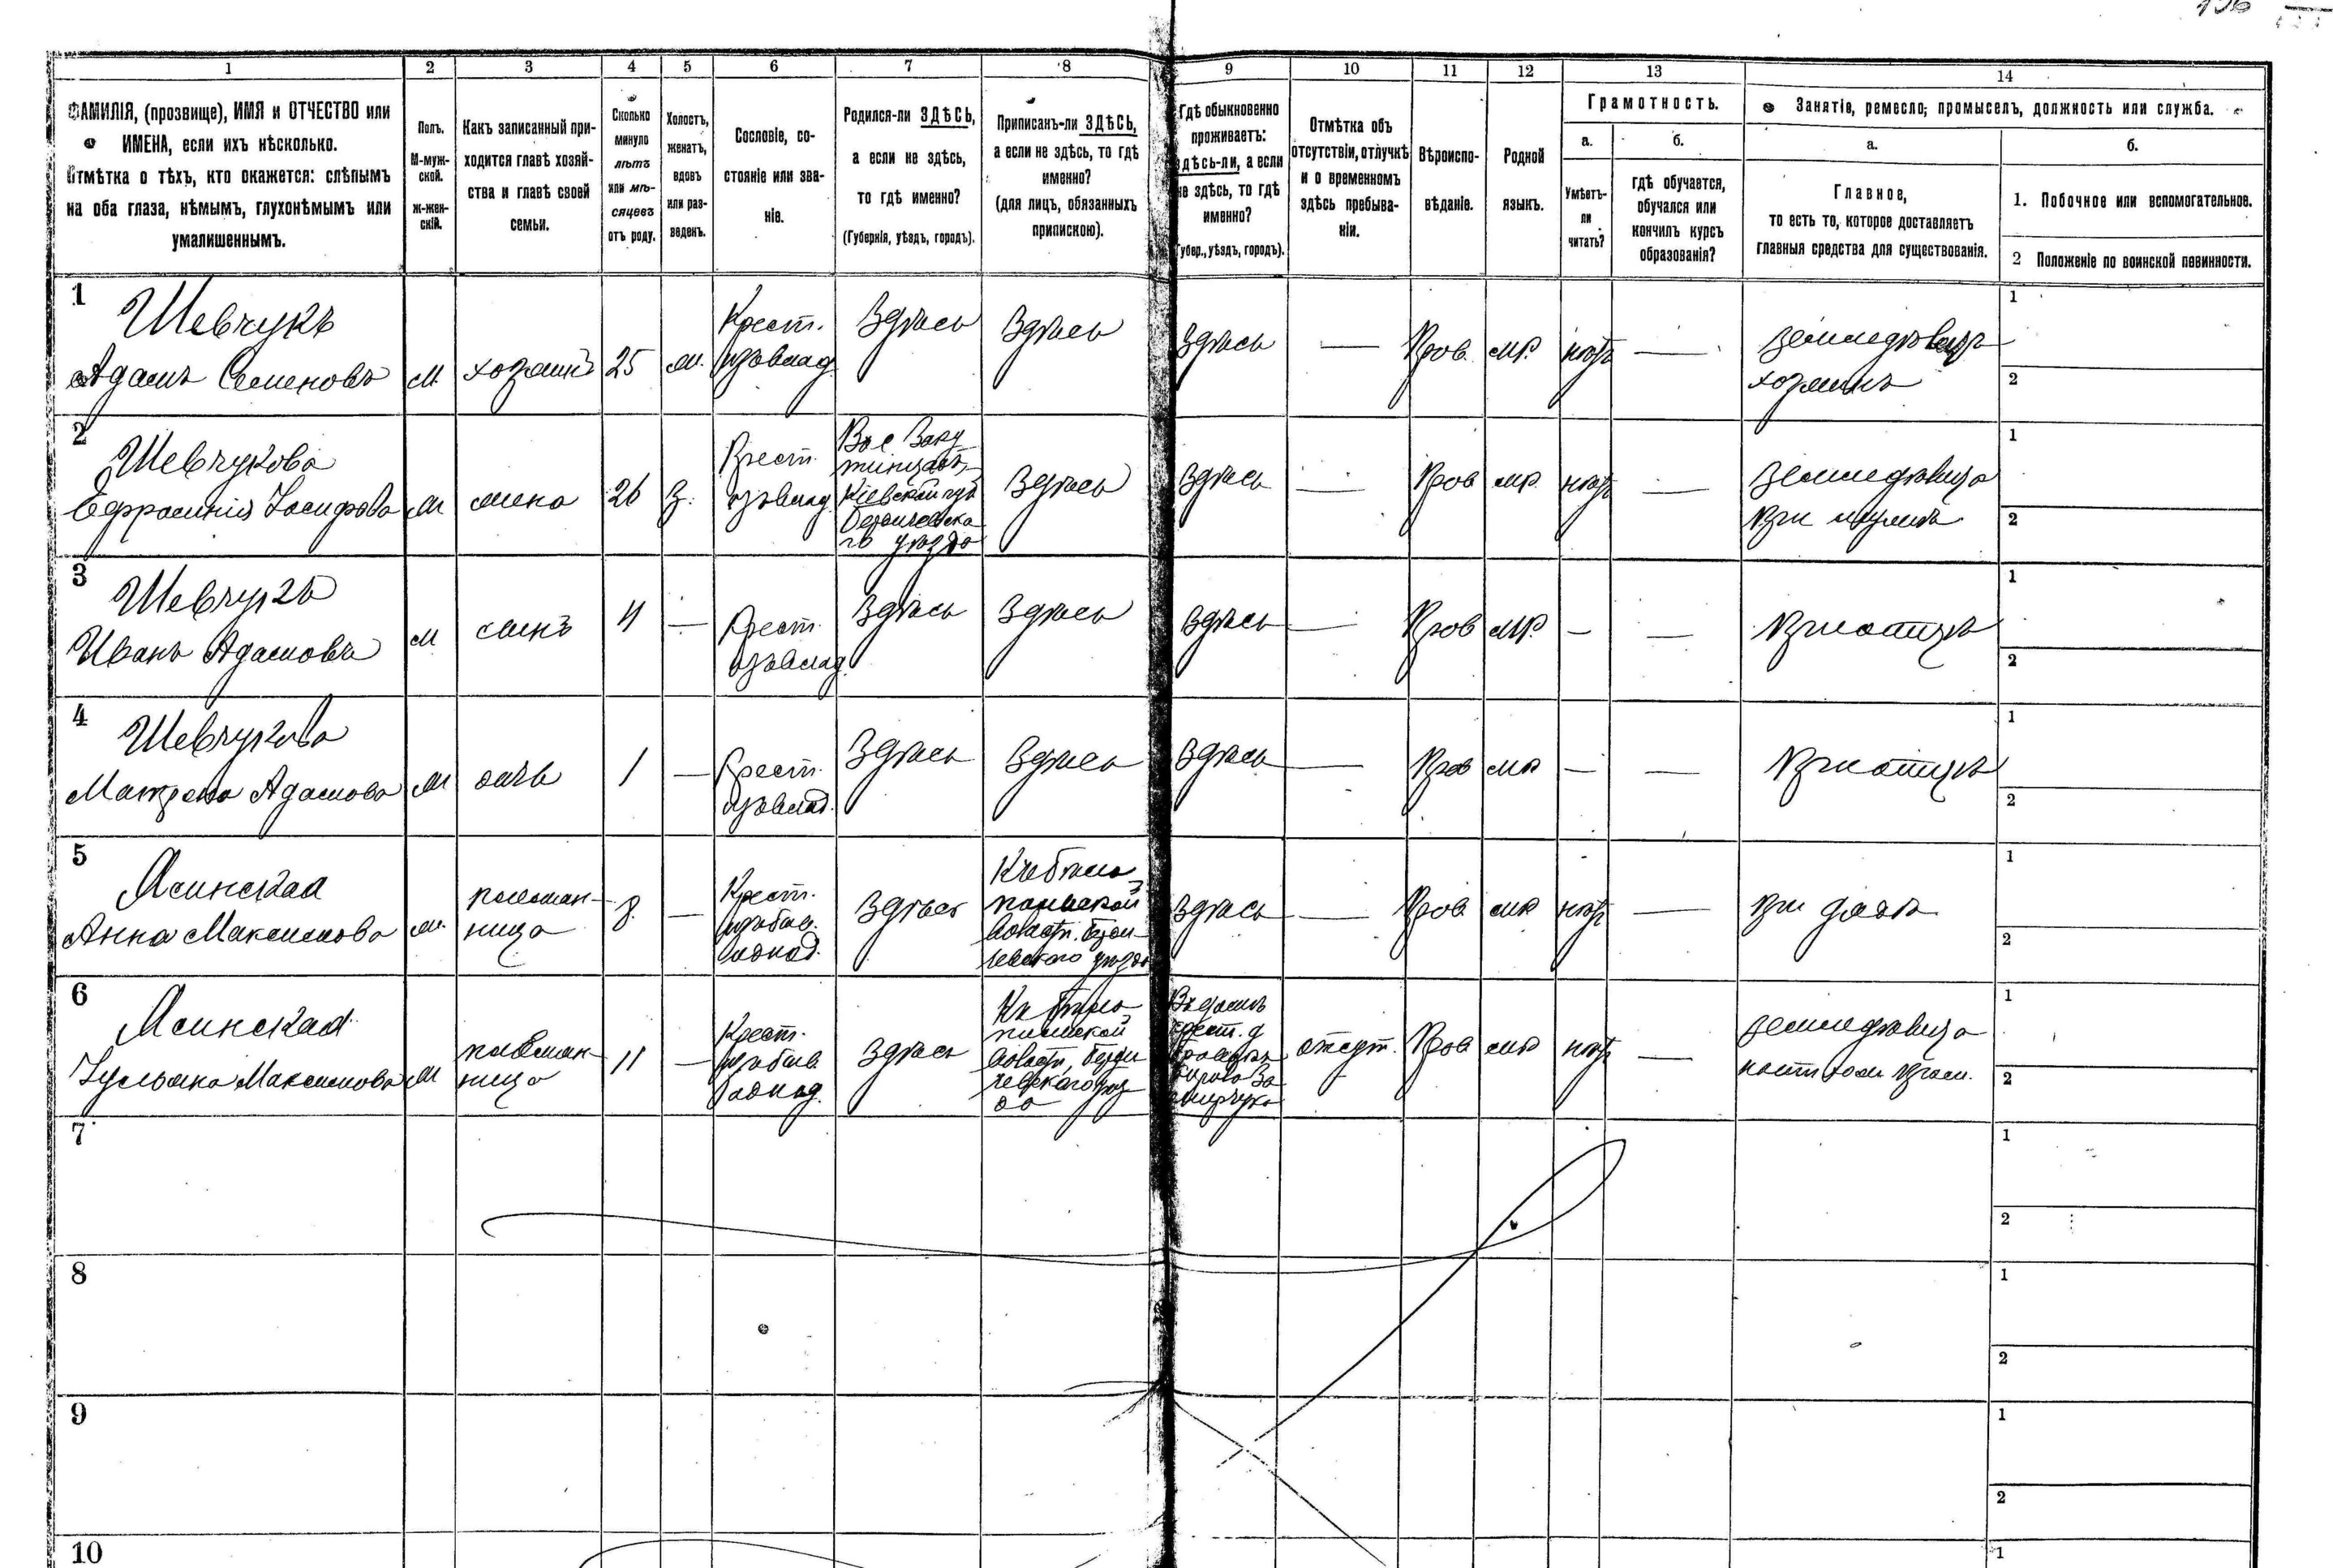 1 2 3 4 5 6 7 8 9 10 11 12 13 14
ФАМИЛІЯ, (прозвище), ИМЯ и ОТЧЕСТВО или
ИМЕНА, если ихъ нѣсколько.
Отмѣтка о тѣхъ, кто окажется: слѣпымъ
на оба глаза, нѣмымъ, глухонѣмымъ или
умалишеннымъ.
Полъ.
М-муж-
ской.
Ж-жен-
скій.
Какъ записанный при-
ходится главѣ хозяй-
ства и главѣ своей
семьи.
Сколько
минуло
лѣтъ
или мѣ-
сяцевъ
отъ роду.
Холостъ,
женатъ,
вдовъ
или раз-
веденъ.
Сословіе, со-
стояніе или зва-
ніе.
Родился-ли ЗДѢСЬ,
а если не здѣсь,
то гдѣ именно?
(Губернія, уѣздъ, городъ).
Приписанъ-ли ЗДѢСЬ,
а если не здѣсь, то гдѣ
именно?
(для лицъ, обязанныхъ
припискою).
Гдѣ обыкновенно
проживаетъ:
здѣсь-ли, а если
не здѣсь, то гдѣ
именно?
(Губер., уѣздъ, городъ).
Отмѣтка объ
отсутствіи, отлучкѣ
и о временномъ
здѣсь пребыва-
ніи.
Вѣроиспо-
вѣданіе.
Родной
языкъ.
Грамотность.
а.
Умѣетъ-
ли
читать?
б.
гдѣ обучается,
обучался или
кончилъ курсъ
образованія?
Занятіе, ремесло, промыселъ, должность или служба.
а.
Главное,
то есть то, которое доставляетъ
главныя средства для существованія.
б.
1. Побочное или вспомогательное.
2 Положеніе по воинской повинности.
1
Шевчукъ
Адамъ Семеновъ
м.
хозяинъ
25
ж.
Крест.
изъ влад.
Здѣсь
Здѣсь
Здѣсь
—
Прав.
мр.
нѣтъ
—
земледѣлецъ
хозяинъ
1
2
2
Шевчукова
Ефросинія Іосифова
ж
жена
26
з.
Крест.
изъ влад.
Кіевской губ
Бердичевска
го уѣзда
Здѣсь
Здѣсь
—
Прав
мр.
нѣтъ
—
земледѣлица
при мужѣ
1
2
3
Шевчукъ
Иванъ Адамовъ
м
сынъ
4
—
Крест.
изъ влад.
Здѣсь
Здѣсь
Здѣсь
—
Прав
мр.
—
—
при отцѣ
1
2
4
Шевчукова
Матрена Адамова
ж
дочь
1
—
Крест.
изъ влад.
Здѣсь
Здѣсь
Здѣсь
—
Прав
мр
—
—
при отцѣ
1
2
5
Ясинская
Анна Максимова
ж.
племян-
ница
8
—
Крест.
Здѣсь
уѣзда
Здѣсь
—
Прав
мр
нѣтъ
—
при дядѣ
1
2
6
Ясинская
Іульяна Максимова
ж
племян-
ница
11
—
Крест.
Здѣсь
крест. д
отсут.
Прав
мр
нѣтъ
—
земледѣлица
1
2
7
1
2
8
1
2
9
1
2
10
1